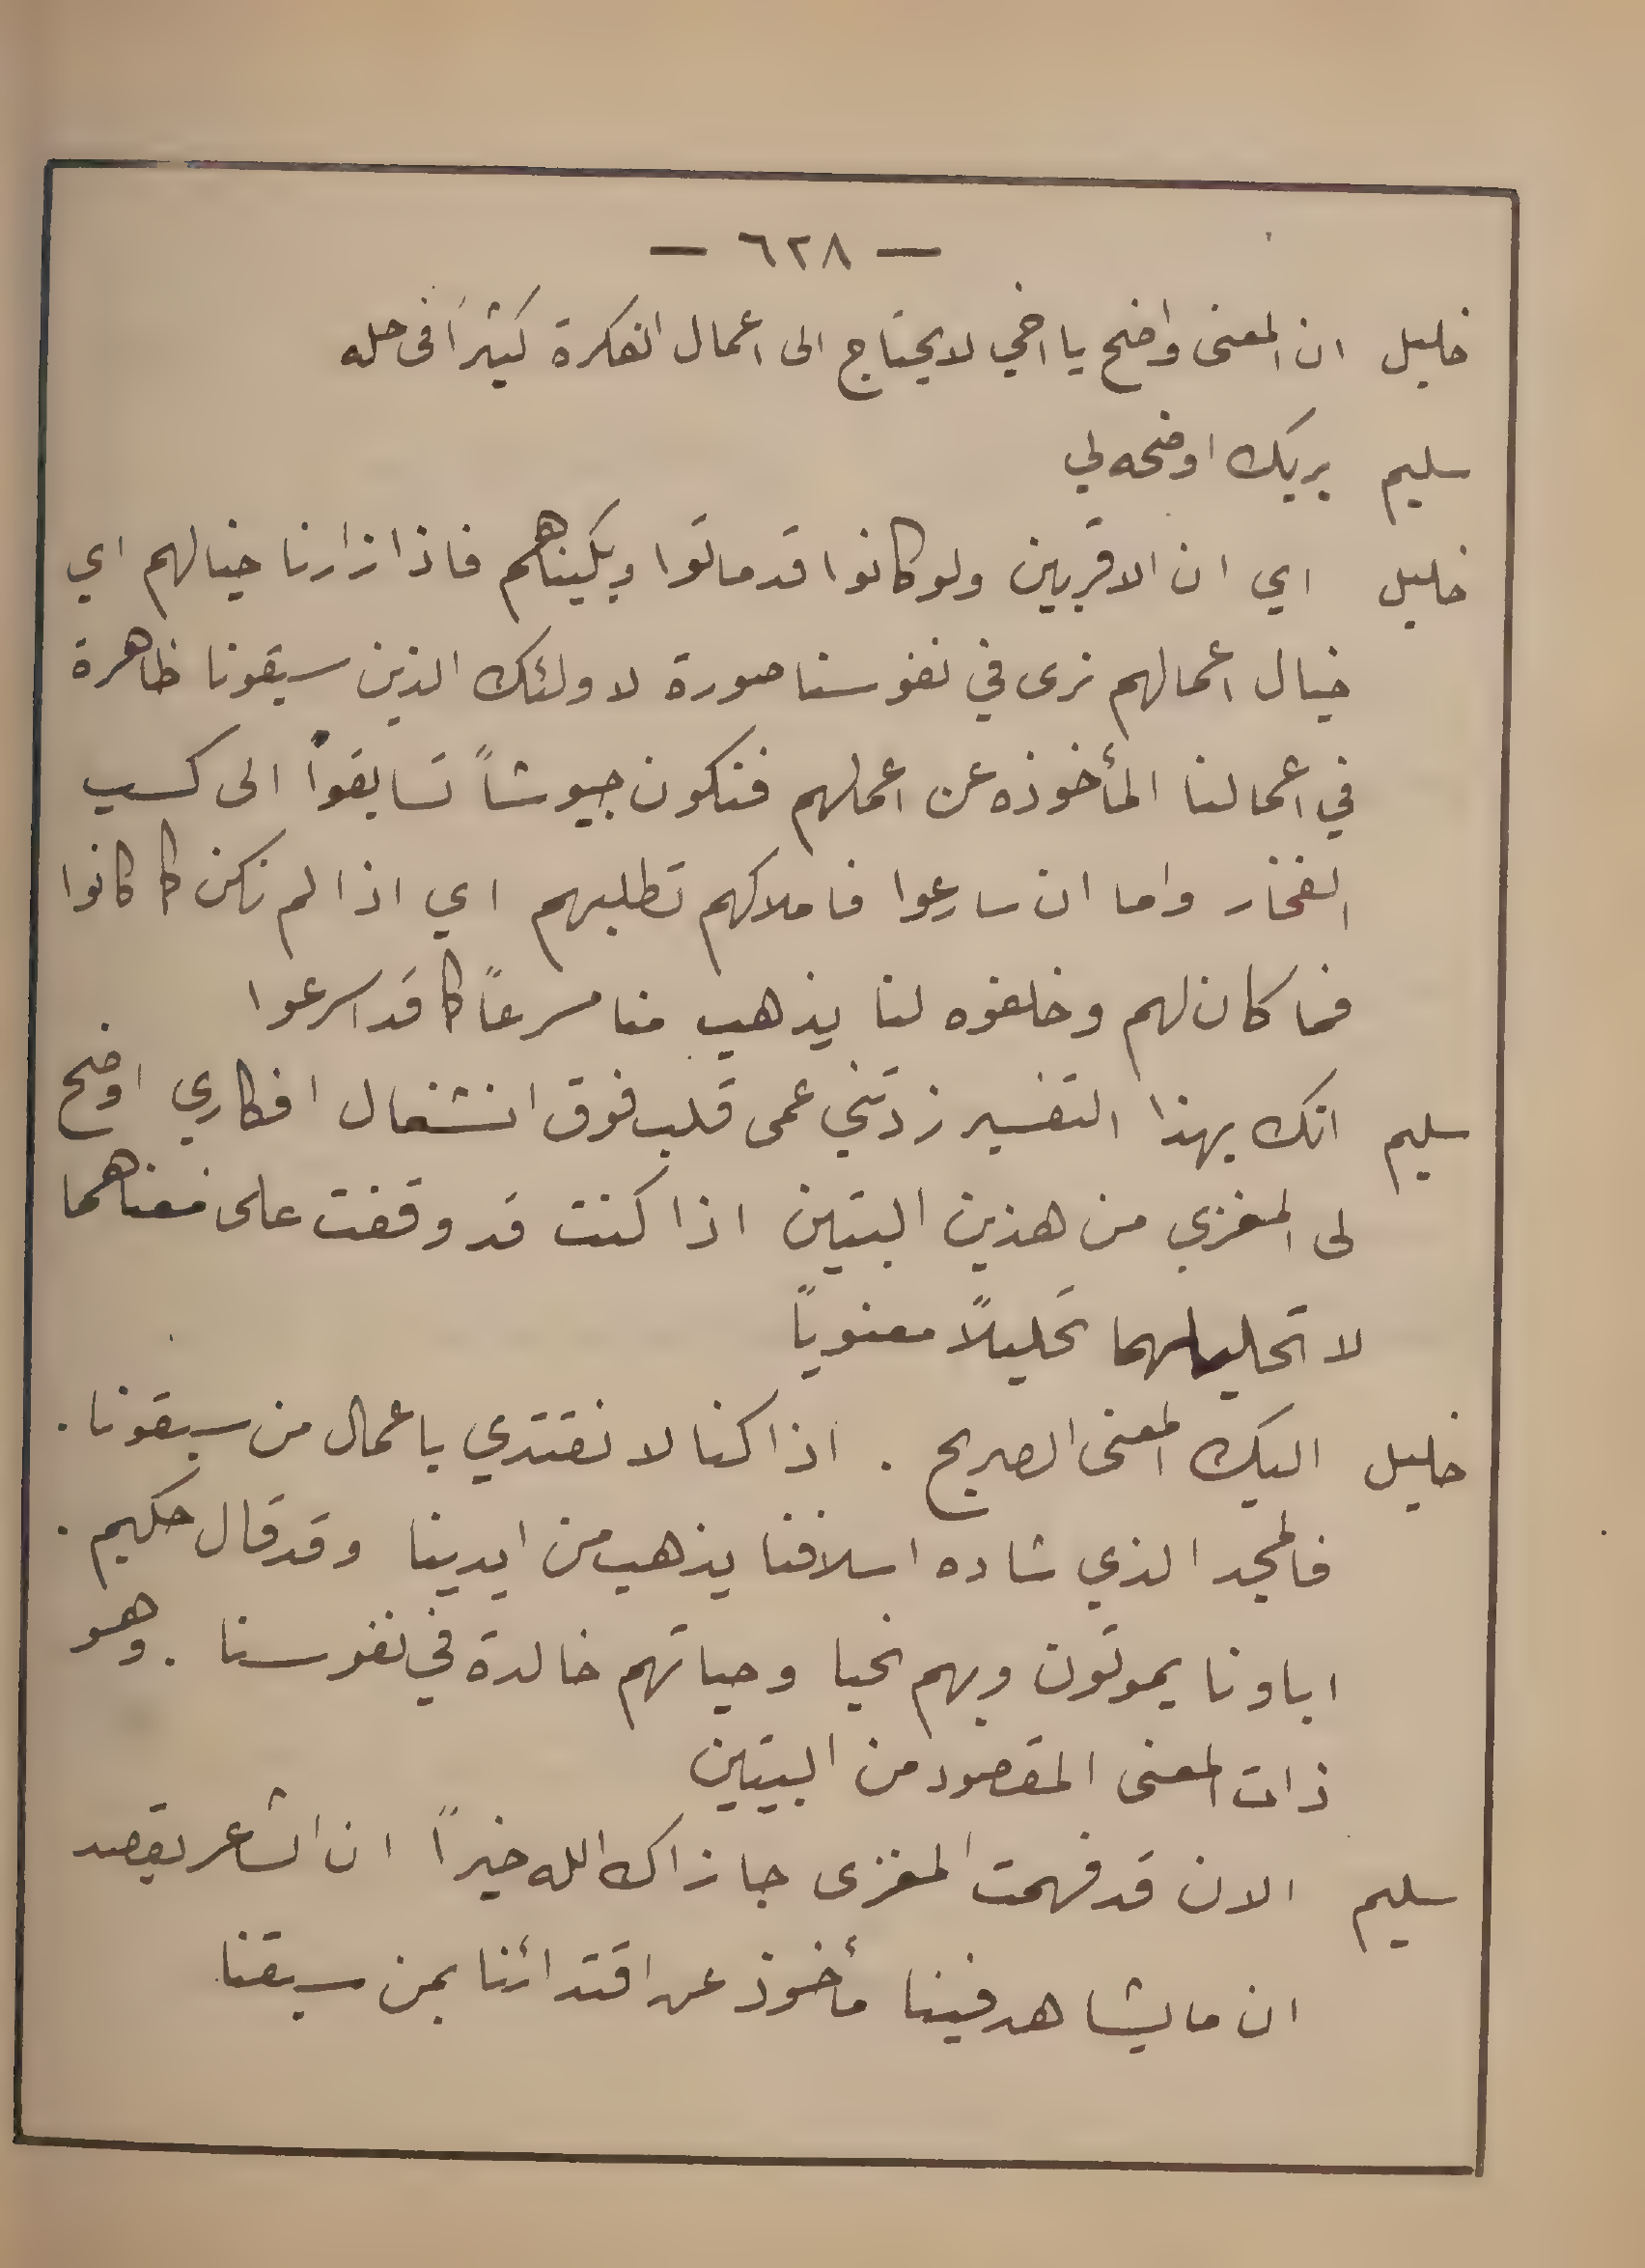 — ٦٢٨ —
خليل ان المعنى واضح يا اخي لا يحتاج الى اعمال الفكرة كثيراً في حله
سليم بربك اوضحه لي
خليل اي ان الاقربين ولو كانوا قد ماتوا وبكيناهم فاذا زارنا خيالهم اي
خيال اعمالهم نرى في نفوسنا صورة لاولئك الذين سبقونا ظاهرة
في اعمالنا المأخوذه عن اعملهم فنكون جيوشاً تسابقوا الى كسب
الفخار واما ان سارعوا فاملاكهم تطلبهم اي اذا لم نكن كما كانوا
فما كان لهم وخلفوه لنا يذهب منا مسرعاً كما قد اسرعوا
سليم انك بهذا التفسير زدتني عمى قلب فوق انشغال افكاري اوضح
لى المغزي من هذين البتين اذا كنت قد وقفت على معناهما
لا تحليلهما تحليلاً معنوياً
خليل اليك المعنى الصريح . اذا كنا لا نقتدي باعمال من سبقونا .
فالمجد الذي شاده اسلافنا يذهب من ايدينا وقد قال حكيم .
اباونا يموتون وبهم نحيا وحياتهم خالدة في نفوسنا . وهو
ذات المعنى المقصود من البيتين
سليم الان قد فهمت المغزى جازاك الله خيراً ان الشاعر يقصد
ان ما يشاهد فينا مأخوذ عن اقتدائنا بمن سبقنا